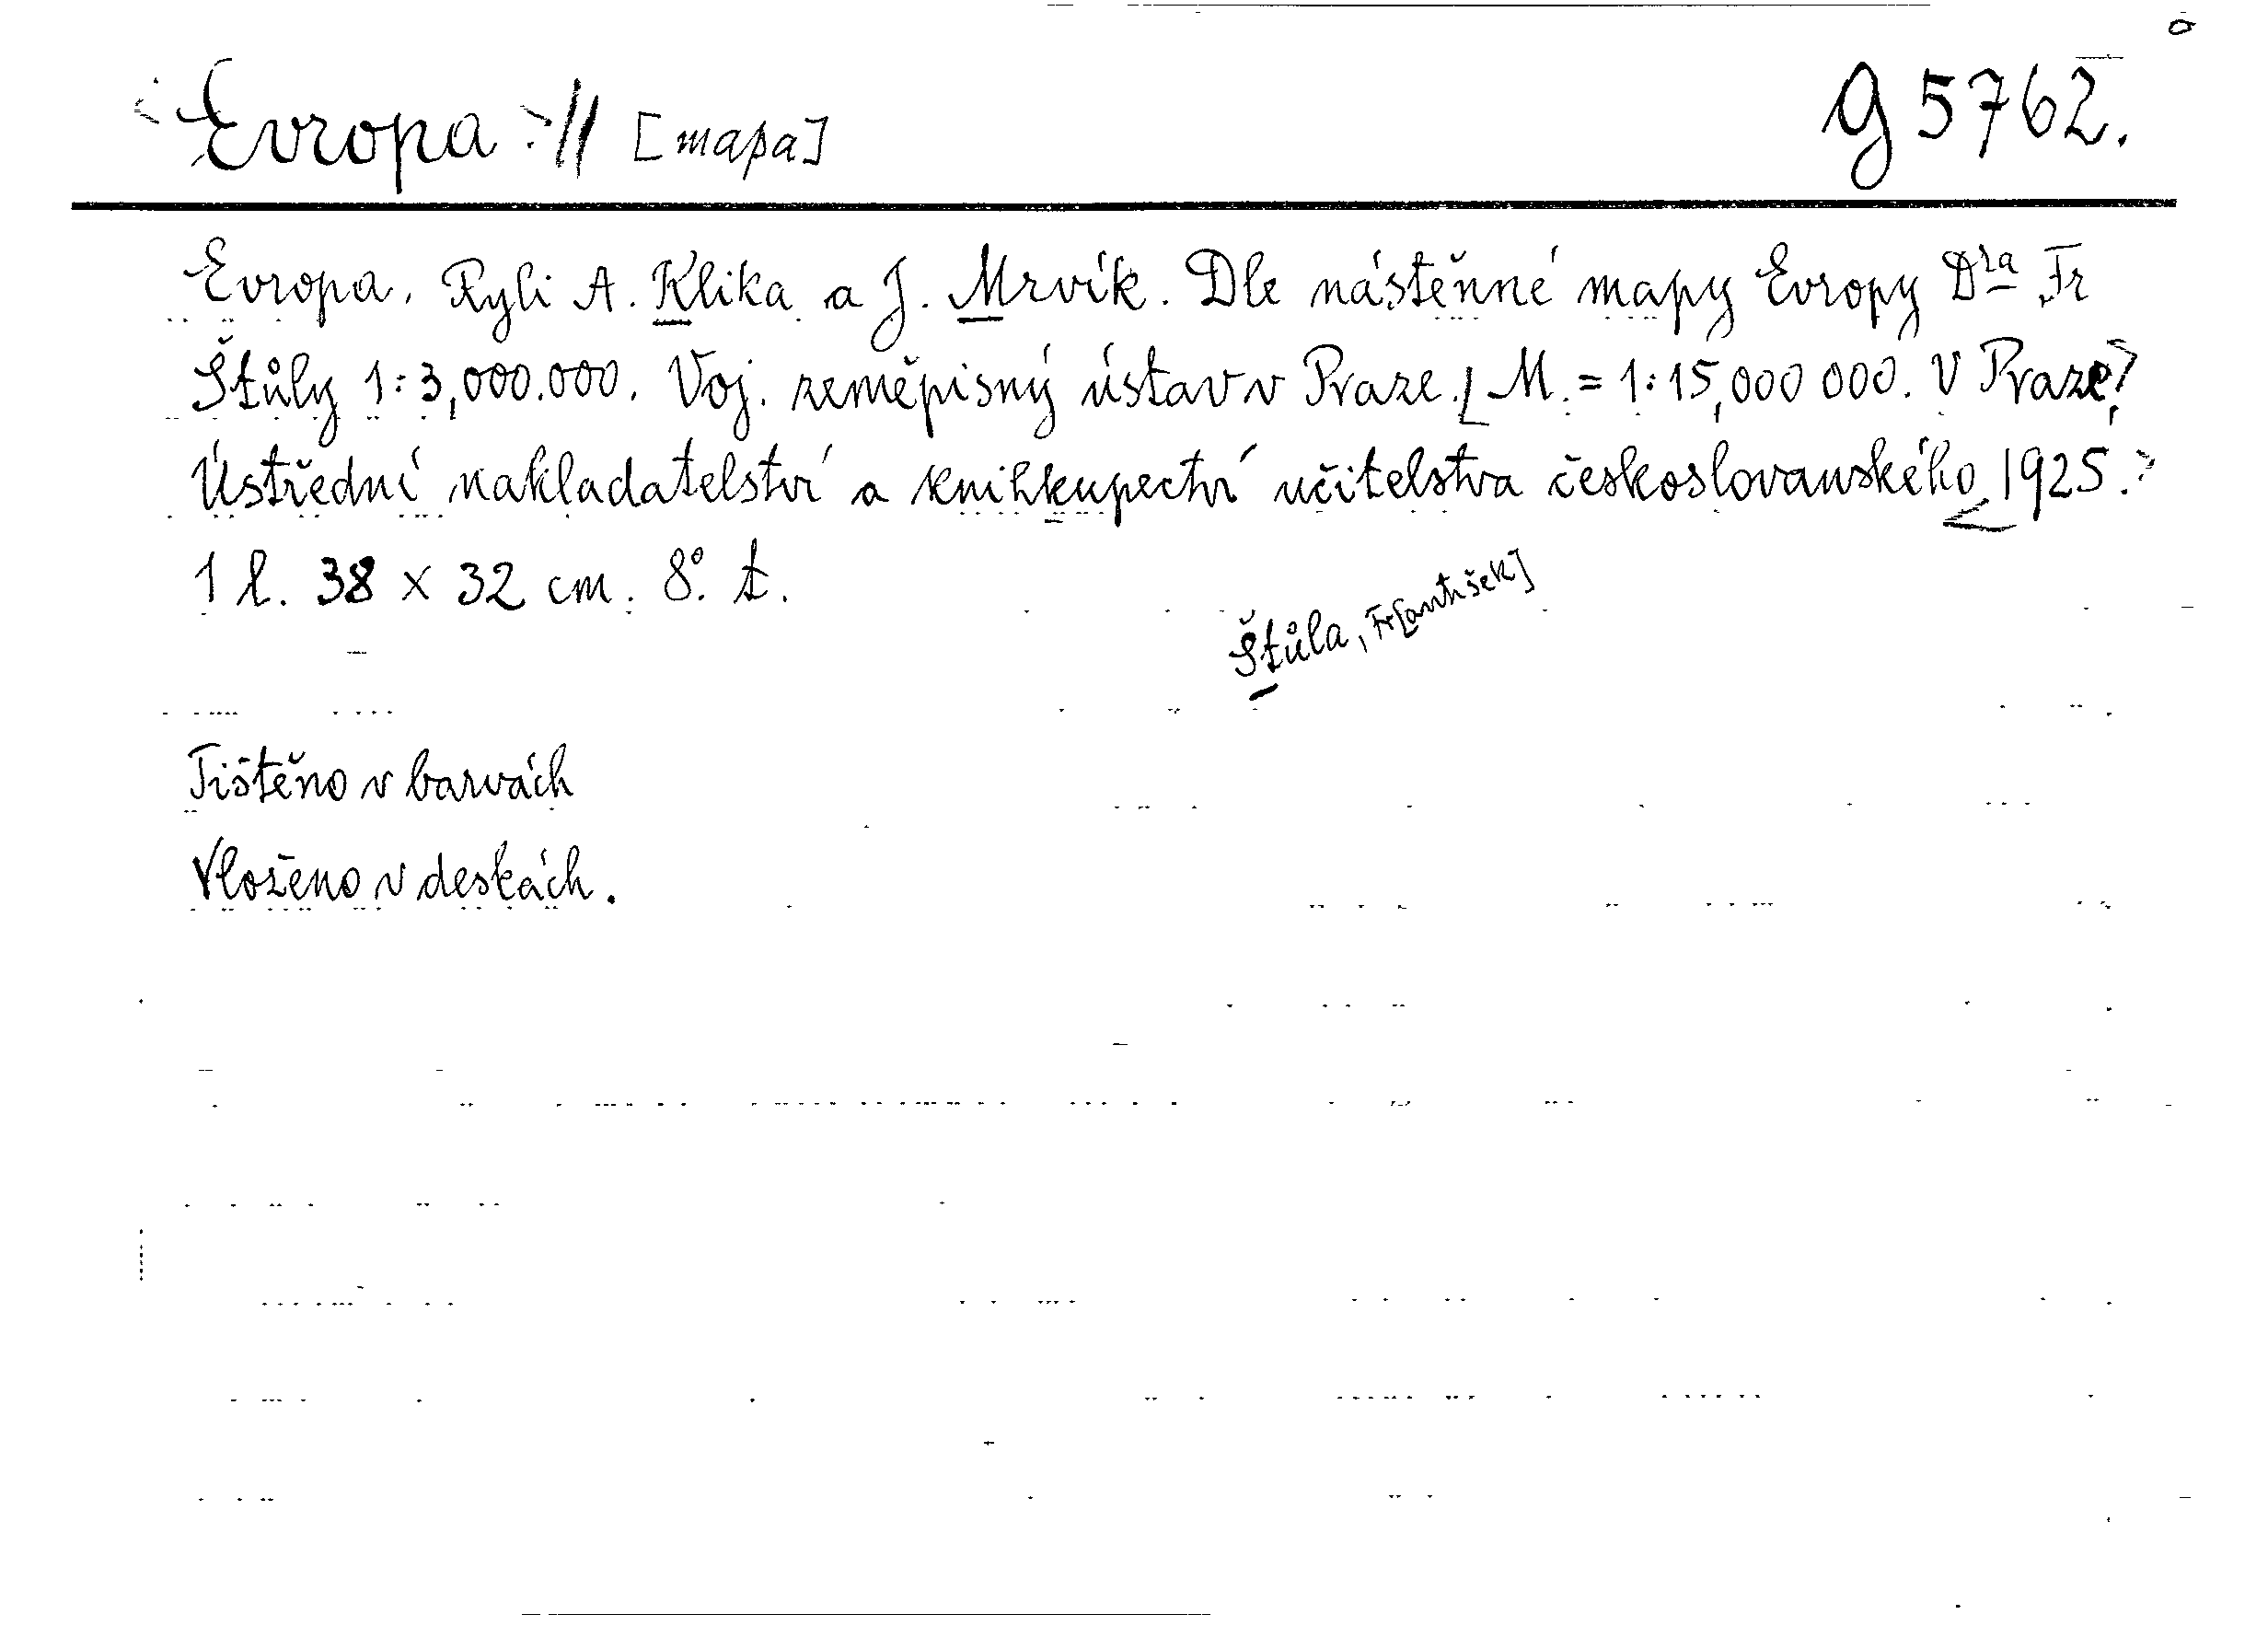 Evropa :// [mapa]
g 5762.
Evropa. Ryli A. Klika a J. Mrvík. Dle nástěnné mapy Evropy Dra Fr
Štůly 1:3,000.000. Voj. zeměpisný ústav v Praze. [M. = 1:15,000 000. V Praze,]
Ústřední nakladatelství a knihkupectví učitelstva československého 1925.
1 l. 38 x 32 cm. 8°. t.
Štůla, Fr[antišek]
Tištěno v barvách
Vloženo v deskách.